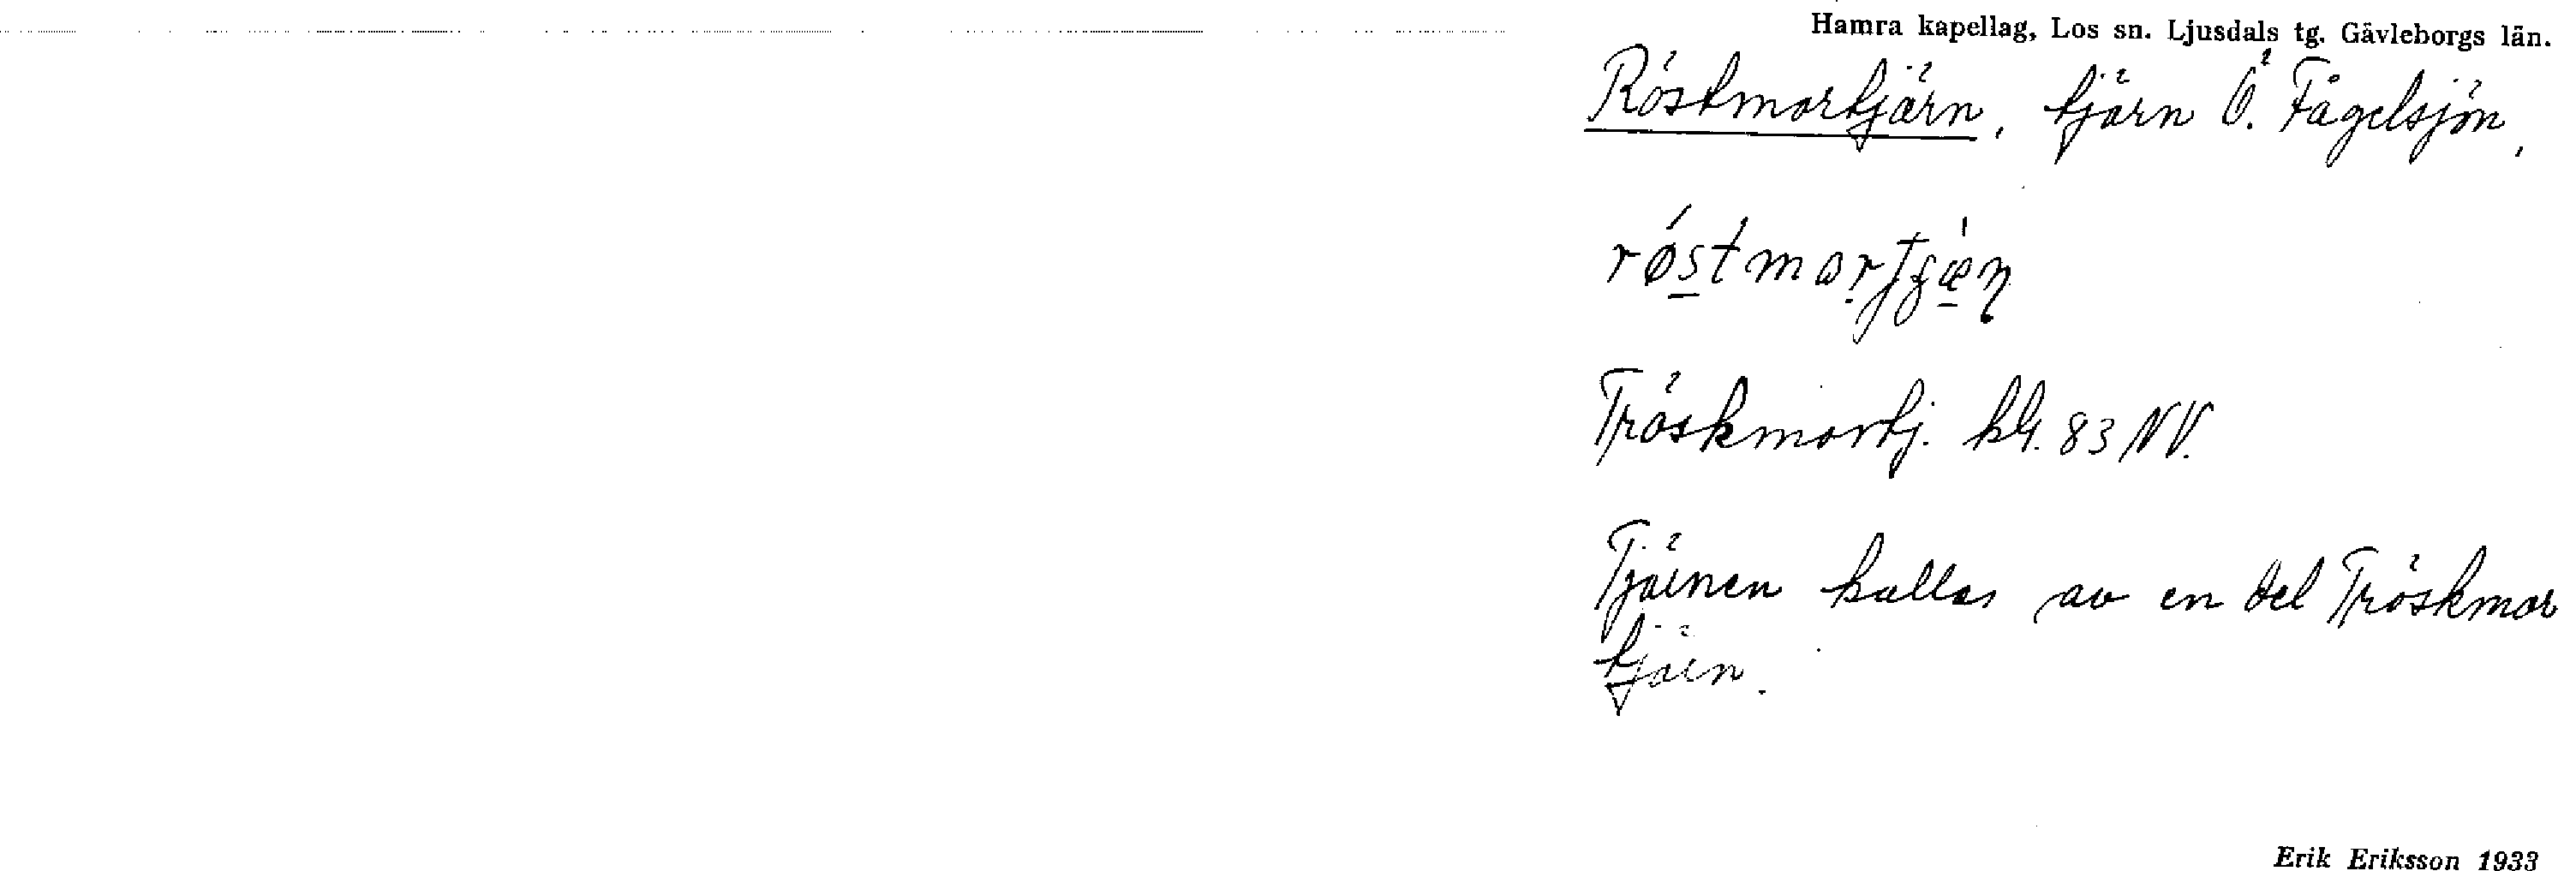 Hamra kapellag, Los sn. Ljusdals tg. Gävleborgs län.
Röstmortjärn, tjärn Ö. Fågelsjön,
røstmortjæn
Tröskmortj. kbl. 83 NV.
Tjärnen kallas av en del Tröskmor
tjärn.
Erik Eriksson 1933